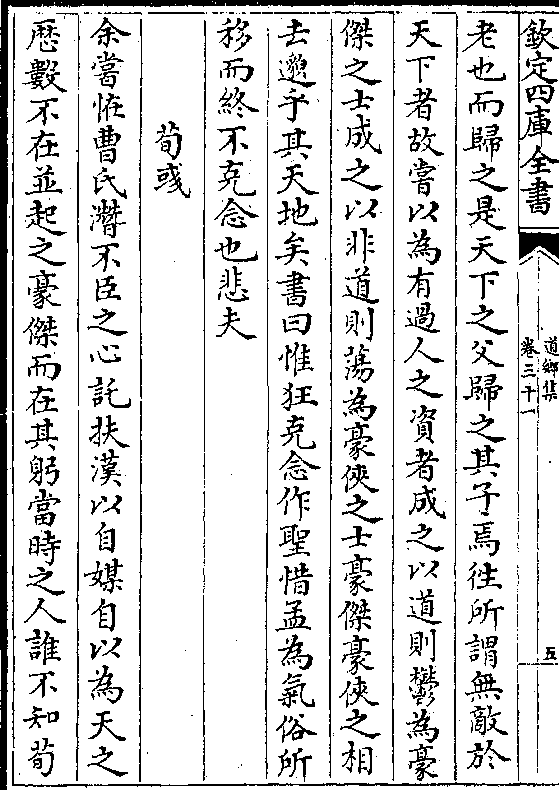 欽定四庫全書
道鄉集
卷三十一
五
老也而歸之是天下之父歸之其子焉徃所謂無敵於
天下者故嘗以為有過人之資者成之以道則鬱為豪
傑之士成之以非道則蕩為豪俠之士豪傑豪俠之相
去邈乎其天地矣書曰惟狂克念作聖惜孟為氣俗所
移而終不克念也悲夫
荀彧
余嘗恠曹氏濳不臣之心託扶漢以自媒自以為天之
厯數不在並起之豪傑而在其躬當時之人誰不知荀